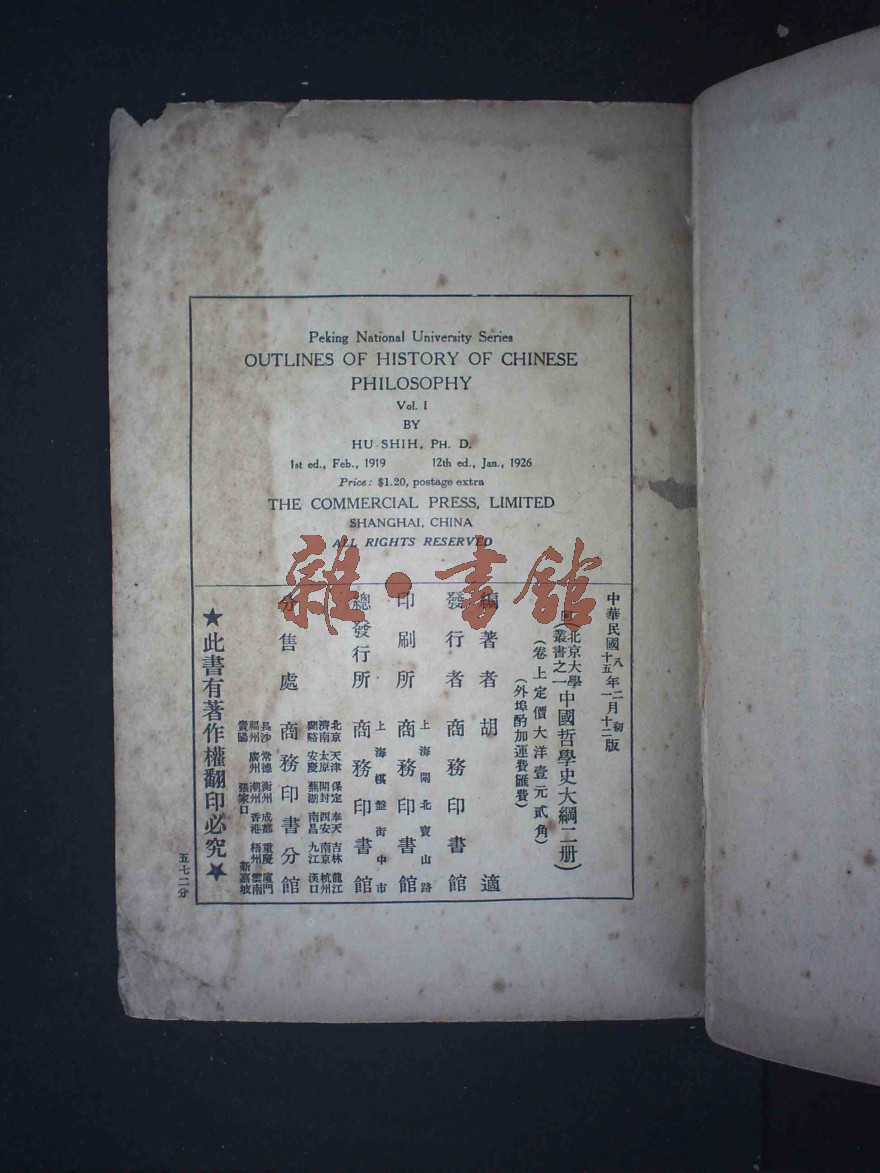 Peking National University Series
OUTLINES OF HISTORY OF CHINESE
PHILOSOPHY
Vol. I
BY
HU SHIH, PH. D.
1st ed., Feb., 1919 12th ed., Jan., 1926
Price: $1.20, postage extra
THE COMMERCIAL PRESS, LIMITED
SHANGHAI, CHINA
ALL RIGHTS RESERVED
雜·書館
中華民國八年二月初版
十五年一月十二版
北京大學
叢書之一
中國哲學史大綱二册
(卷上定價大洋壹元貳角)
(外埠酌加運費匯費)
編著者 胡適
發行者 商務印書館
印刷所 上海閘北寶山路 商務印書館
總發行所 上海棋盤街中市 商務印書館
分售處 商務印書分館
北京 天津 保定 奉天 吉林 龍江
濟南 太原 開封 西安 南京 杭州
蘭谿 安慶 蕪湖 南昌 九江 漢口
長沙 常德 衡州 成都 重慶 廈門
福州 廣州 潮州 香港 梧州 雲南
貴陽 張家口 新嘉坡
★此書有著作權翻印必究★
五七二分